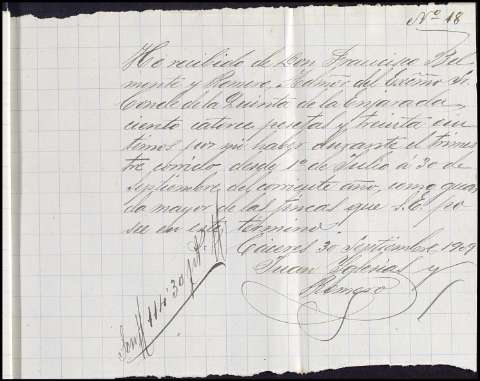 Nº 18
He recibido de Don Francisco Bel
monte y Romero, Admor del Excmo Sr.
Conde de la Quinta de la Enjarada,
ciento catorce pesetas y treinta cen
timos por mi haber durante el trimes
tre corrido desde 1º de Julio á 30 de
Septiembre del corriente año, como guar
da mayor de las fincas que S.E. po
see en este término.
Cáceres 30 Septiembre 1909
Juan Iglesias y
Son # 114'30 pts. #